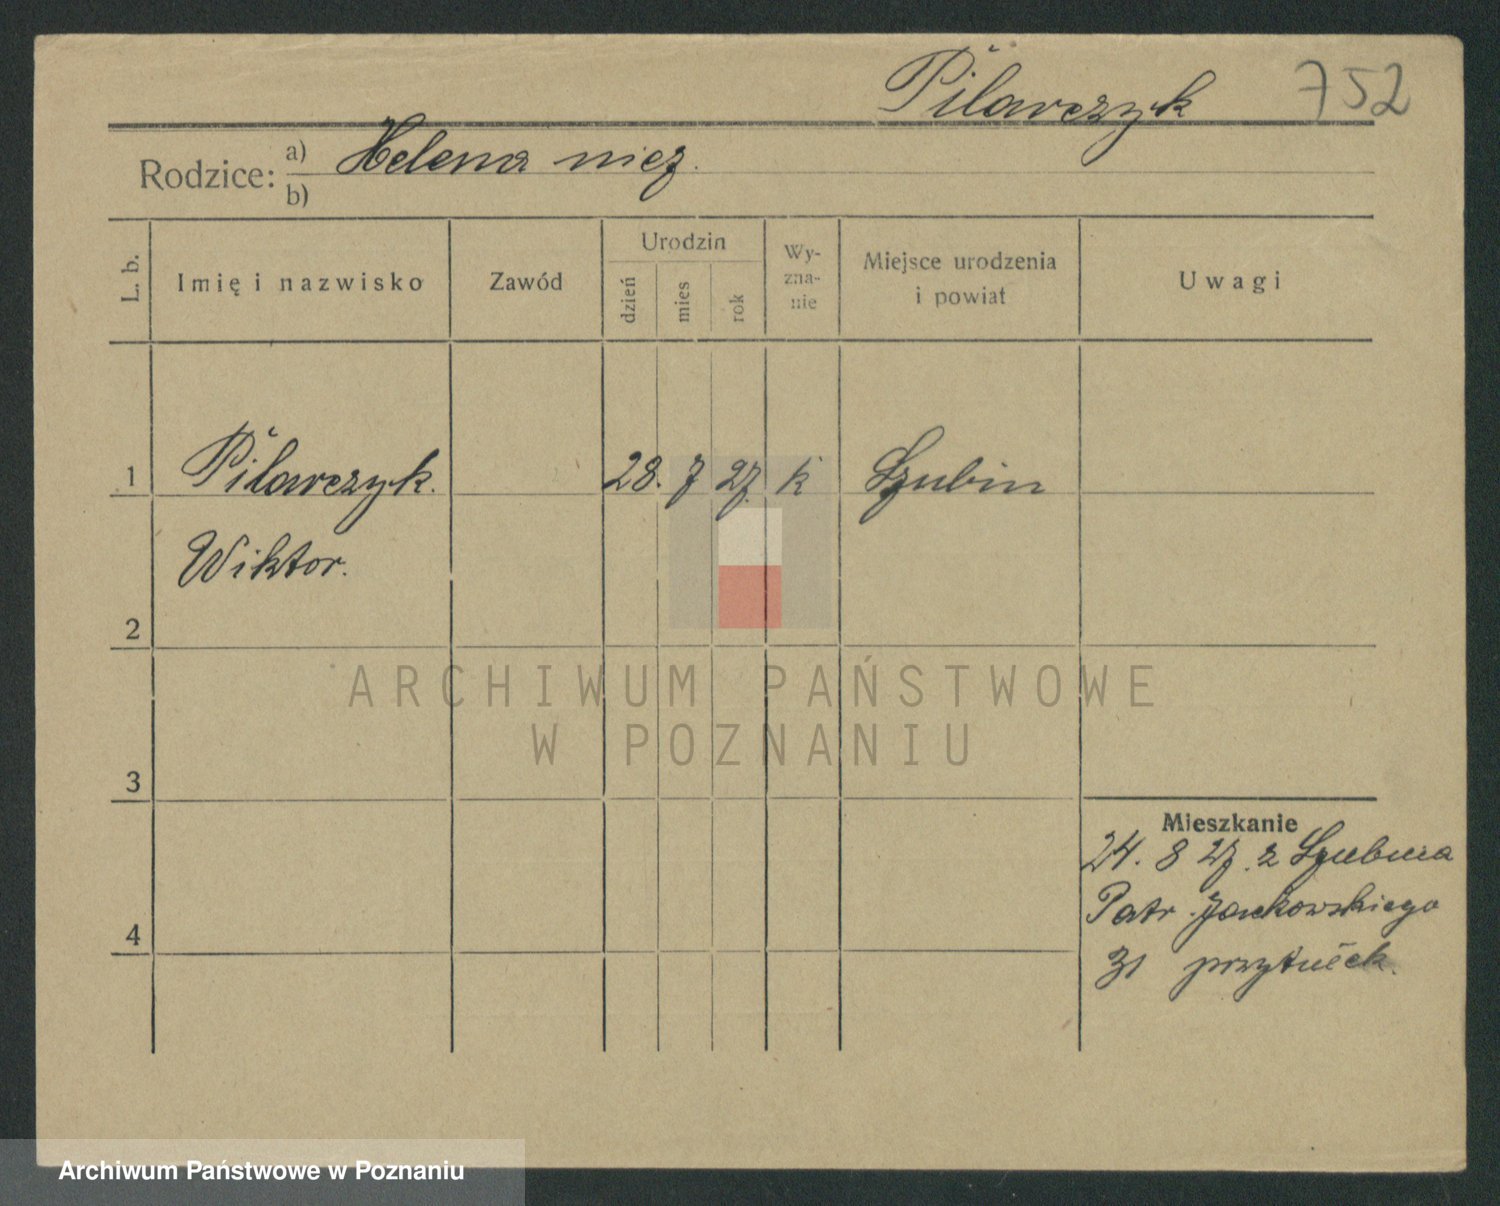 Pilarczyk 752
Rodzice: a) Helena niez.
b)
L. b. Imię i nazwisko Zawód Urodzin dzień mies rok Wy-zna-nie Miejsce urodzenia i powiat Uwagi
1 Pilarczyk. 28. 7 27. k Szubin
Wiktor.
2
ARCHIWUM PAŃSTWOWE
W POZNANIU
3
Mieszkanie
24. 8 27. z Szubina
Patr. Jackowskiego
4
31 przytułek.
Archiwum Państwowe w Poznaniu